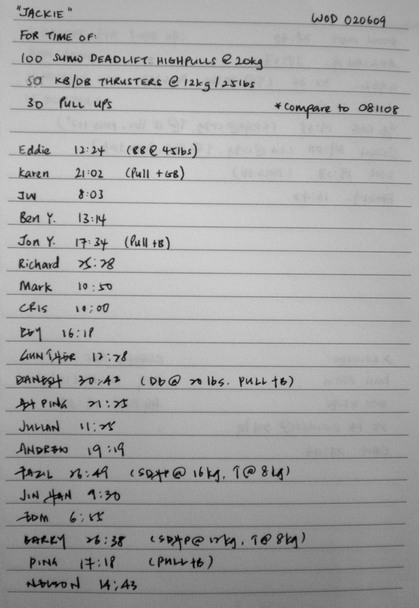 "JACKIE" WOD 020609
FOR TIME OF:
100 SUMO DEADLIFT HIGHPULLS @ 20kg
50 KB/DB THRUSTERS @ 12kg/25lbs
30 PULL UPS *Compare to 081108
Eddie 12:24 (BB @ 45lbs)
Karen 21:02 (Pull +GB)
JW 8:03
Ben Y. 13:14
Jon Y. 17:34 (Pull +B)
Richard 25:28
Mark 10:50
CRIS 10:00
REY 16:18
GUNTHER 12:28
DANESH 30:42 (DB @ 20lbs. PULL +B)
AH PING 21:25
JULIAN 11:25
ANDREW 19:19
FAZIL 26:49 (SDHP @ 16kg, T @ 8kg)
JIN HAN 9:30
TOM 6:55
BARRY 26:38 (SDHP @ 12kg, T @ 8kg)
PING 17:18 (PULL +B)
NELSON 14:43